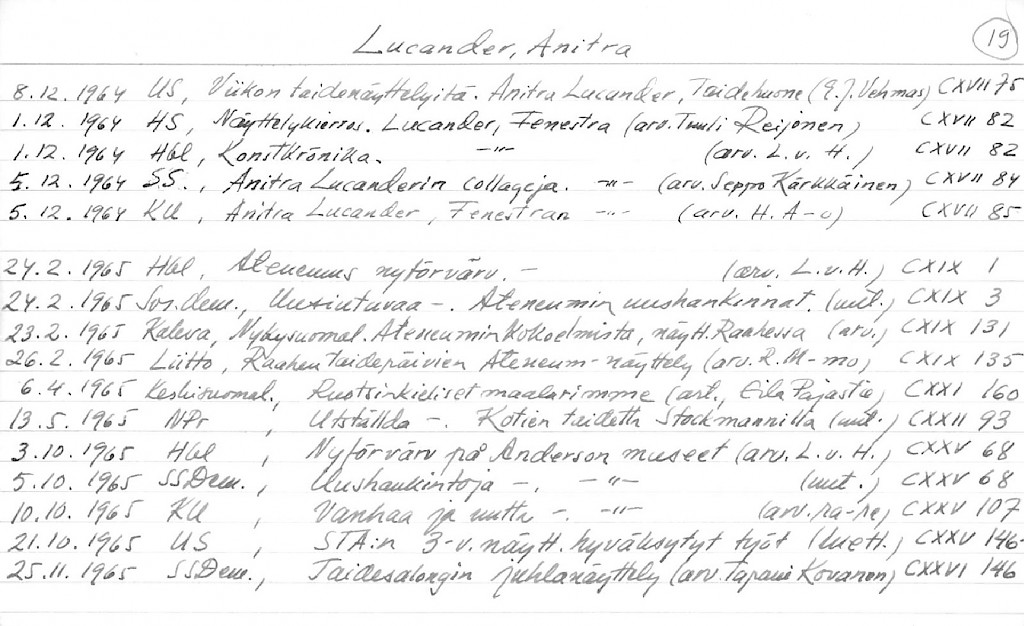 Lucander, Anitra 19
8.12.1964 US, Viikon taidenäyttelyitä. Anitra Lucander, Taidehuone (E.J. Vehmas) CXVII 75
1.12.1964 HS, Näyttelykierros. Lucander, Fenestra (arv. Tuuli Reijonen) CXVII 82
1.12.1964 Hbl, Konstkrönika. -"- (arv. L.v.H.) CXVII 82
5.12.1964 SS., Anitra Lucanderin collageja. -"- (arv. Seppo Kärkkäinen) CXVII 84
5.12.1964 KU, Anitra Lucander, Fenestran -"- (arv. H. A-o) CXVII 85
24.2.1965 Hbl, Ateneums nyförvärv. - (arv. L.v.H.) CXIX 1
24.2.1965 Sos.dem., Uusiutuvaa -. Ateneumin uushankinnat. (uut.) CXIX 3
23.2.1965 Kaleva, Nykysuomal. Ateneumin kokoelmista, näytt. Raahessa (arv.) CXIX 131
26.2.1965 Liitto, Raahen taidepäivien Ateneum-näyttely (arv. R. M-mo) CXIX 135
6.4.1965 Keskisuomal., Ruotsinkieliset maalarimme (art., Eila Pajastie) CXXI 160
13.5.1965 NPr, Utställda -. Kotien taidetta Stockmannilla (uut.) CXXII 93
3.10.1965 Hbl, Nyförvärv på Anderson museet (arv. L.v.H.) CXXV 68
5.10.1965 SSDem., Uushankintoja -. -"- (uut.) CXXV 68
10.10.1965 KU, Vanhaa ja uutta -. -"- (arv. ra-re) CXXV 107
21.10.1965 US, STA:n 3-v. näytt. hyväksytyt työt (luett.) CXXV 146-
25.11.1965 SSDem., Taidesalongin juhlanäyttely (arv. Tapani Kovanen) CXXVI 146